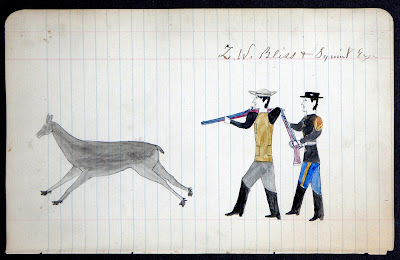 Z. W. Bliss & Squint Eye